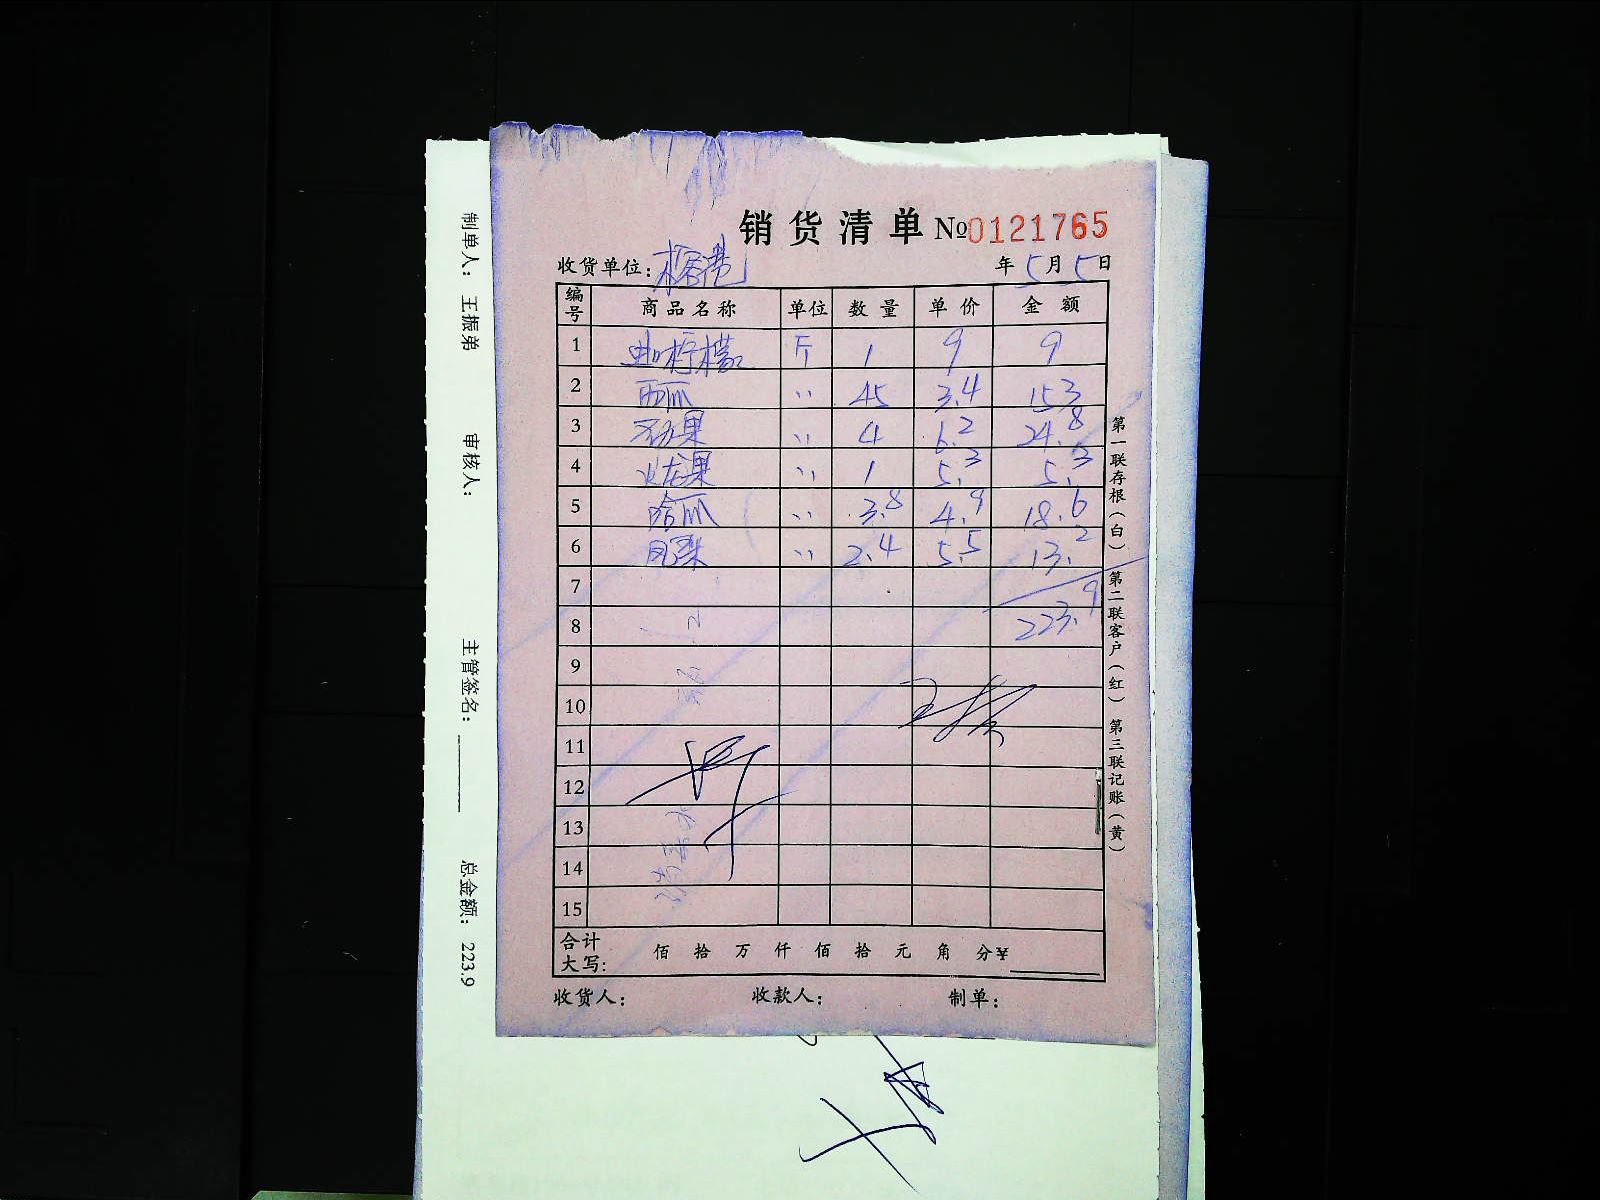 销货清单 №0121765
收货单位： 榕港 年 5 月 5 日
编号 商品名称 单位 数量 单价 金额
1 柠檬 斤 1 9 9
2 西瓜 〃 45 3.4 153
3 果 〃 4 6.2 24.8
4 火龙果 〃 1 5.3 5.3
5 哈瓜 〃 3.8 4.9 18.6
6 凤梨 〃 2.4 5.5 13.2
7
8 223.9
9
10
11
12
13
14
15
合计大写： 佰 拾 万 仟 佰 拾 元 角 分 ¥
收货人： 收款人： 制单：
第一联存根（白） 第二联客户（红） 第三联记账（黄）
制单人： 王振弟 审核人： 主管签名： 总金额： 223.9